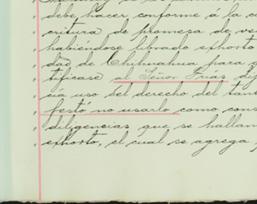 debe hacer, conforme á la
critura de promesa de ve
habiéndose librado exhorto
dad de Chihuahua para
tificase al Señor Frias, dij
cía uso del derecho del tan
festó no usarlo como cons
diligencias que se hallan
exhorto, el cual se agrega